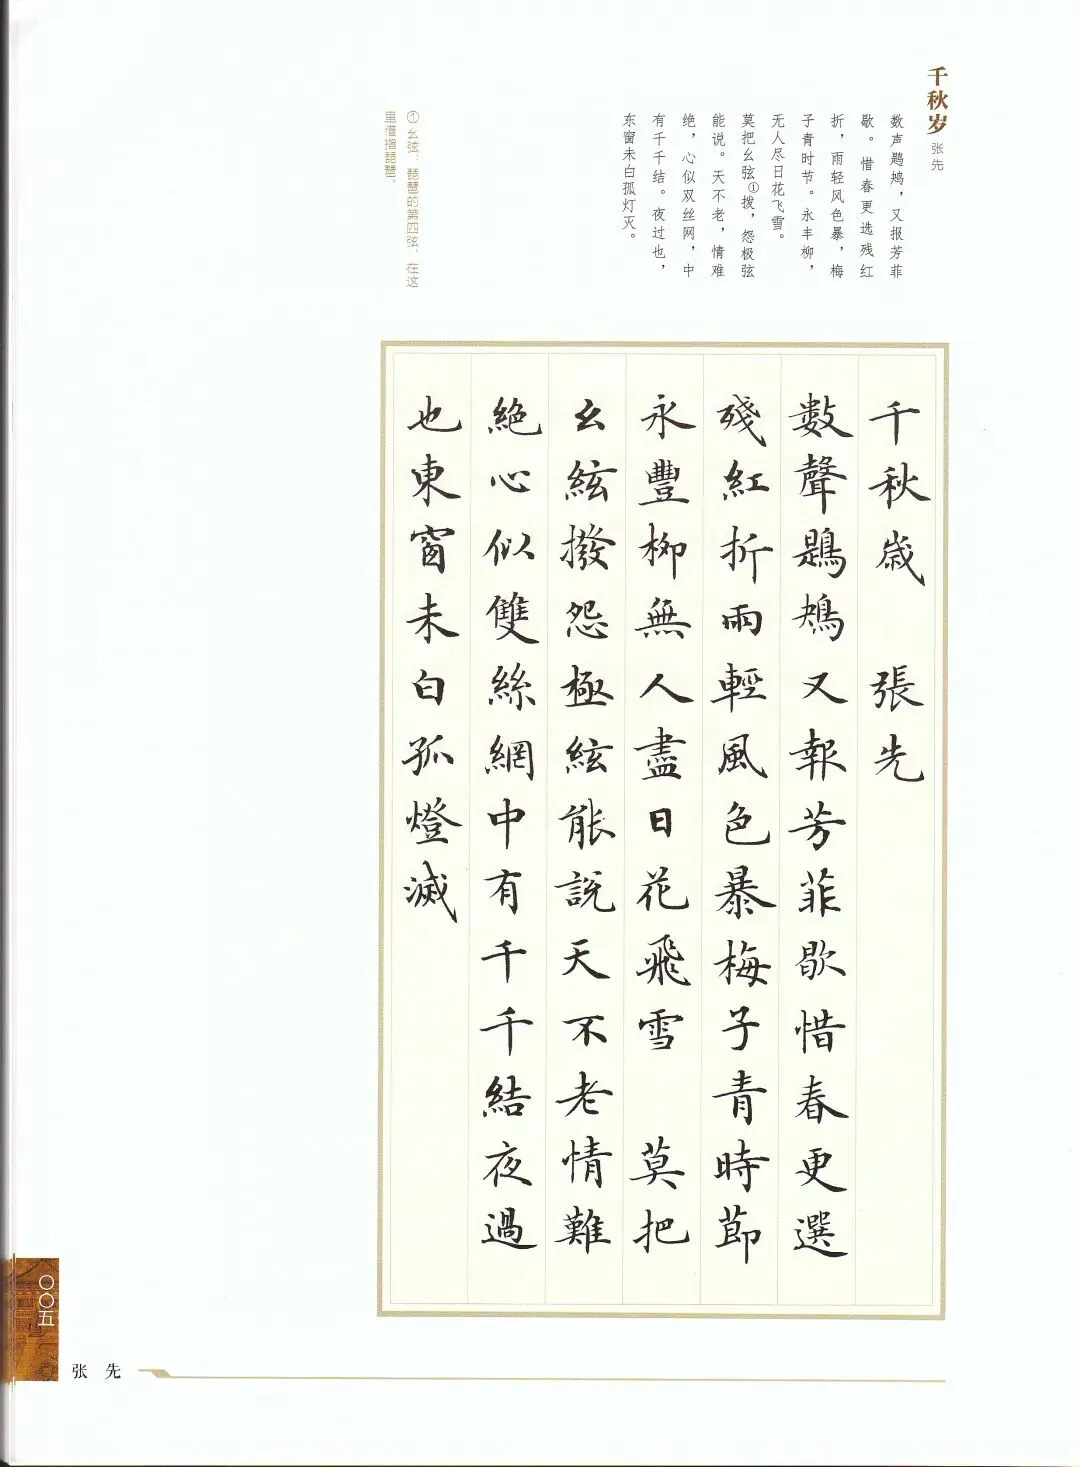 千秋岁
张先
数声鶗鴂，又报芳菲
歇。惜春更选残红
折，雨轻风色暴，梅
子青时节。永丰柳，
无人尽日花飞雪。
莫把幺弦①拨，怨极弦
能说。天不老，情难
绝，心似双丝网，中
有千千结。夜过也，
东窗未白孤灯灭。
①幺弦：琵琶的第四弦，在这
里借指琵琶。
千秋歲 張先
數聲鶗鴂又報芳菲歇惜春更選
殘紅折雨輕風色暴梅子青時節
永豐柳無人盡日花飛雪 莫把
幺絃撥怨極絃能說天不老情難
絕心似雙絲網中有千千結夜過
也東窗未白孤燈滅
〇〇五
张先